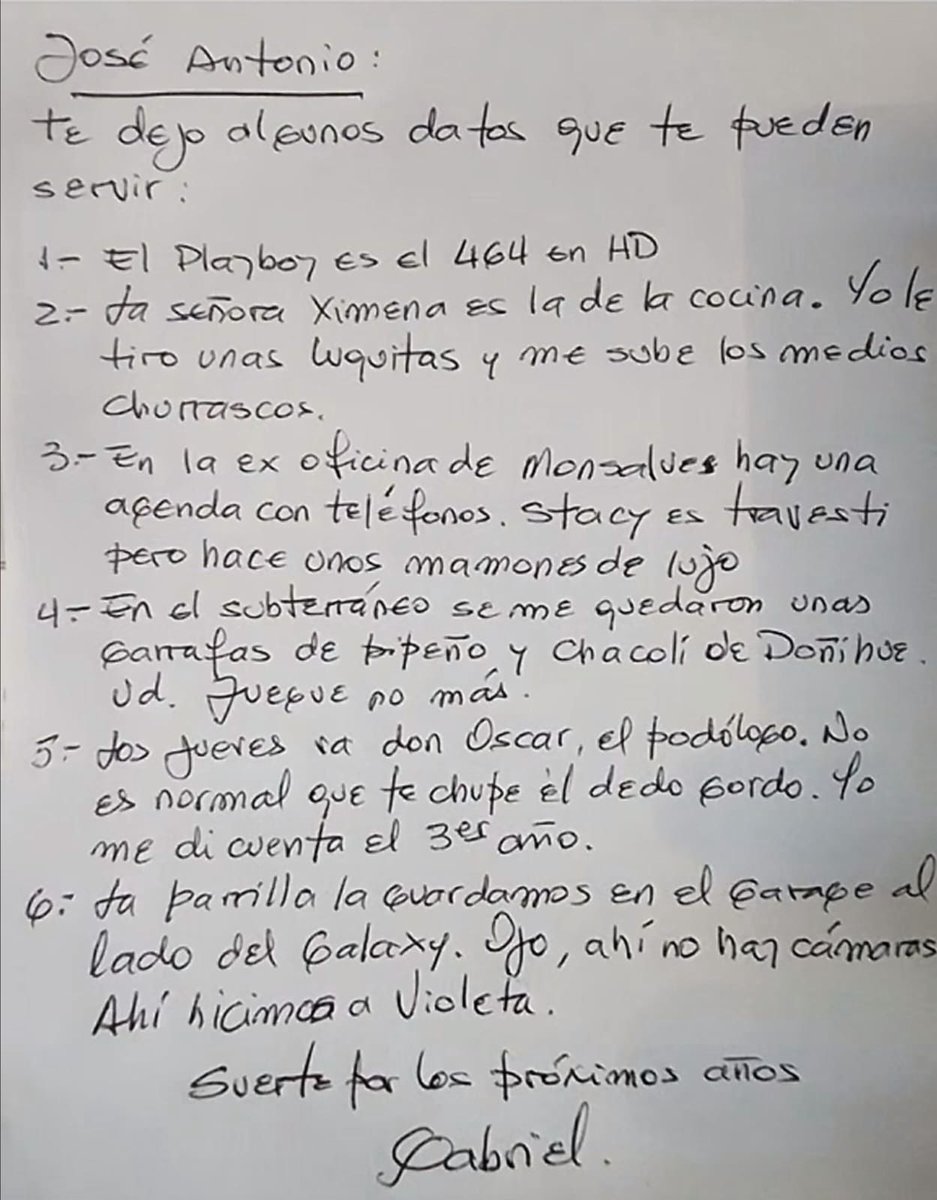 José Antonio:
te dejo algunos datos que te pueden
servir:
1.- El Playboy es el 464 en HD
2.- La señora Ximena es la de la cocina. Yo le
tiro unas luquitas y me sube los medios
churrascos.
3.- En la ex oficina de Monsalves hay una
agenda con teléfonos. Stacy es travesti
pero hace unos mamones de lujo
4.- En el subterráneo se me quedaron unas
garrafas de pipeño y Chacolí de Doñihue.
Ud. Juegue no más.
5.- Los jueves va don Oscar, el podólogo. No
es normal que te chupe el dedo gordo. Yo
me di cuenta el 3er año.
6.- La parrilla la guardamos en el garage al
lado del Galaxy. Ojo, ahí no hay cámaras
Ahí hicimos a Violeta.
Suerte por los próximos años
Gabriel.